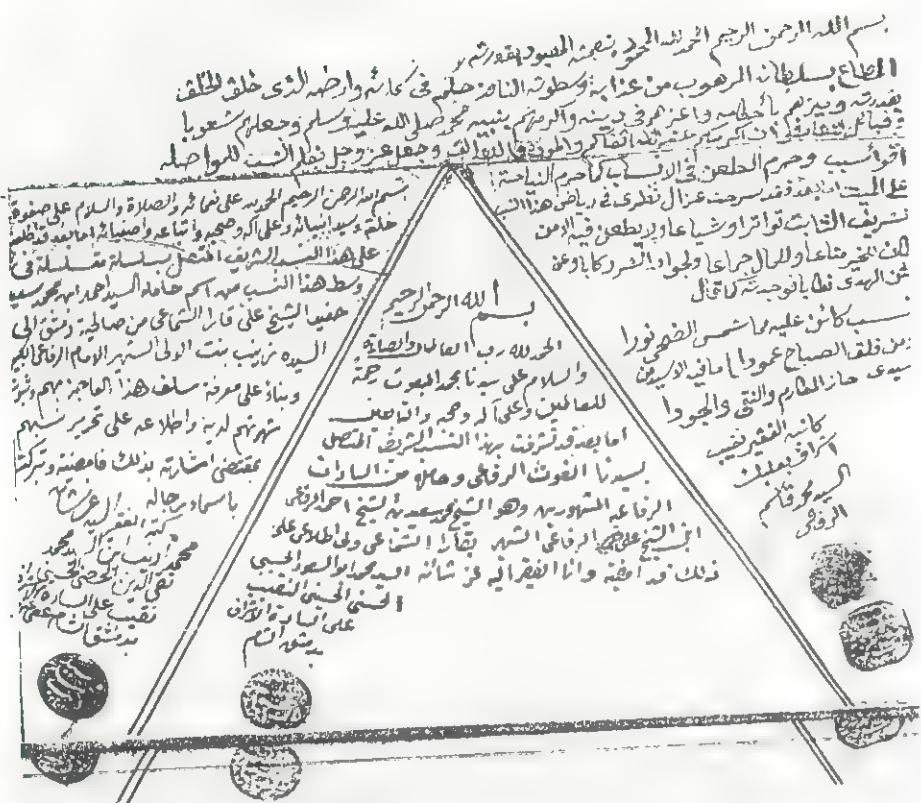 بسم الله الرحمن الرحيم الحمد لله المحمود بنعمته المعبود بقدرته
المطاع بسلطانه المرهوب من عذابه وسطوته النافذ حكمه في سمائه وارضه الذي خلق الخلق
بقدرته وميزهم بأحكامه واعزهم في دينه وأكرمهم بنبيه محمد صلى الله عليه وسلم وجعلهم شعوبا
وقبائل لتعارفوا ان اكرمكم عند الله اتقاكم وجعل عز وجل نظام النسب للمواصلة
أقوا سبب وحرم الطعن في الانساب كما حرم النياحة
على الميت اما بعد فقد سرحت غزال نظري في رياض هذا النسب
الشريف الثابت تواترا وشياعا ولا يطعن فيه الا من
كان للخير مناعا وللمال جماعا
عن الهدى فوجدته كما قال
نسب كائن عليه من شمس الضحى نورا
ومن فلق الصباح عمودا ما فيه الا سيد من
سيد حاز المكارم والتقى والجودا
كاتبه الفقير نقيب
اشراف بعلبك
السيد محمد قاسم
الرفاعي
بسم الله الرحمن الرحيم الحمد لله على نعمائه والصلاة والسلام على صفوة
خلقه وسيد انبيائه وعلى آله وصحبه واتباعه واصفيائه اما بعد قد اطلعت
على هذا النسب الشريف المتصل بسلسلة متسلسلة في
وسط هذا النسب من اسم حامله السيد احمد ابن محمد سعيد
حفيد الشيخ علي قارا الشماعي من صالحية دمشق الى
السيده زينب بنت الولي الشهير الامام الرفاعي الكبير
وبناء على معرفة سلف هذا
شهرتهم لديه واطلاعه على تحرير نسبهم
بمقتضى اشارته بذلك فامضيته وتبركت
باسماء رجاله
كتبه الفقير اليه عز شأنه
محمد اديب ابن السيد محمد
تقي الدين الحصني الحسيني
نقيب على السادة
بدمشق الشام عفي عنه
بسم الله الرحمن الرحيم
الحمد لله رب العالمين والصلاة
والسلام على سيدنا محمد المبعوث رحمة
للعالمين وعلى آله وصحبه والتابعين
اما بعد قد تشرفت بهذا النسب الشريف المتصل
بسيدنا الغوث الرفاعي وحامله من السادات
الرفاعيه المشهورين وهو الشيخ محمد سعيد بن الشيخ احمد الرفاعي
ابن الشيخ علي الرفاعي الشهير بقارا الشماعي ولدى اطلاعي على
ذلك قد امضيته وانا الفقير اليه عز شأنه السيد محمد ابو السعود الحسيبي
الحسني الحسيني النقيب
على السادة الاشراف
بدمشق الشام